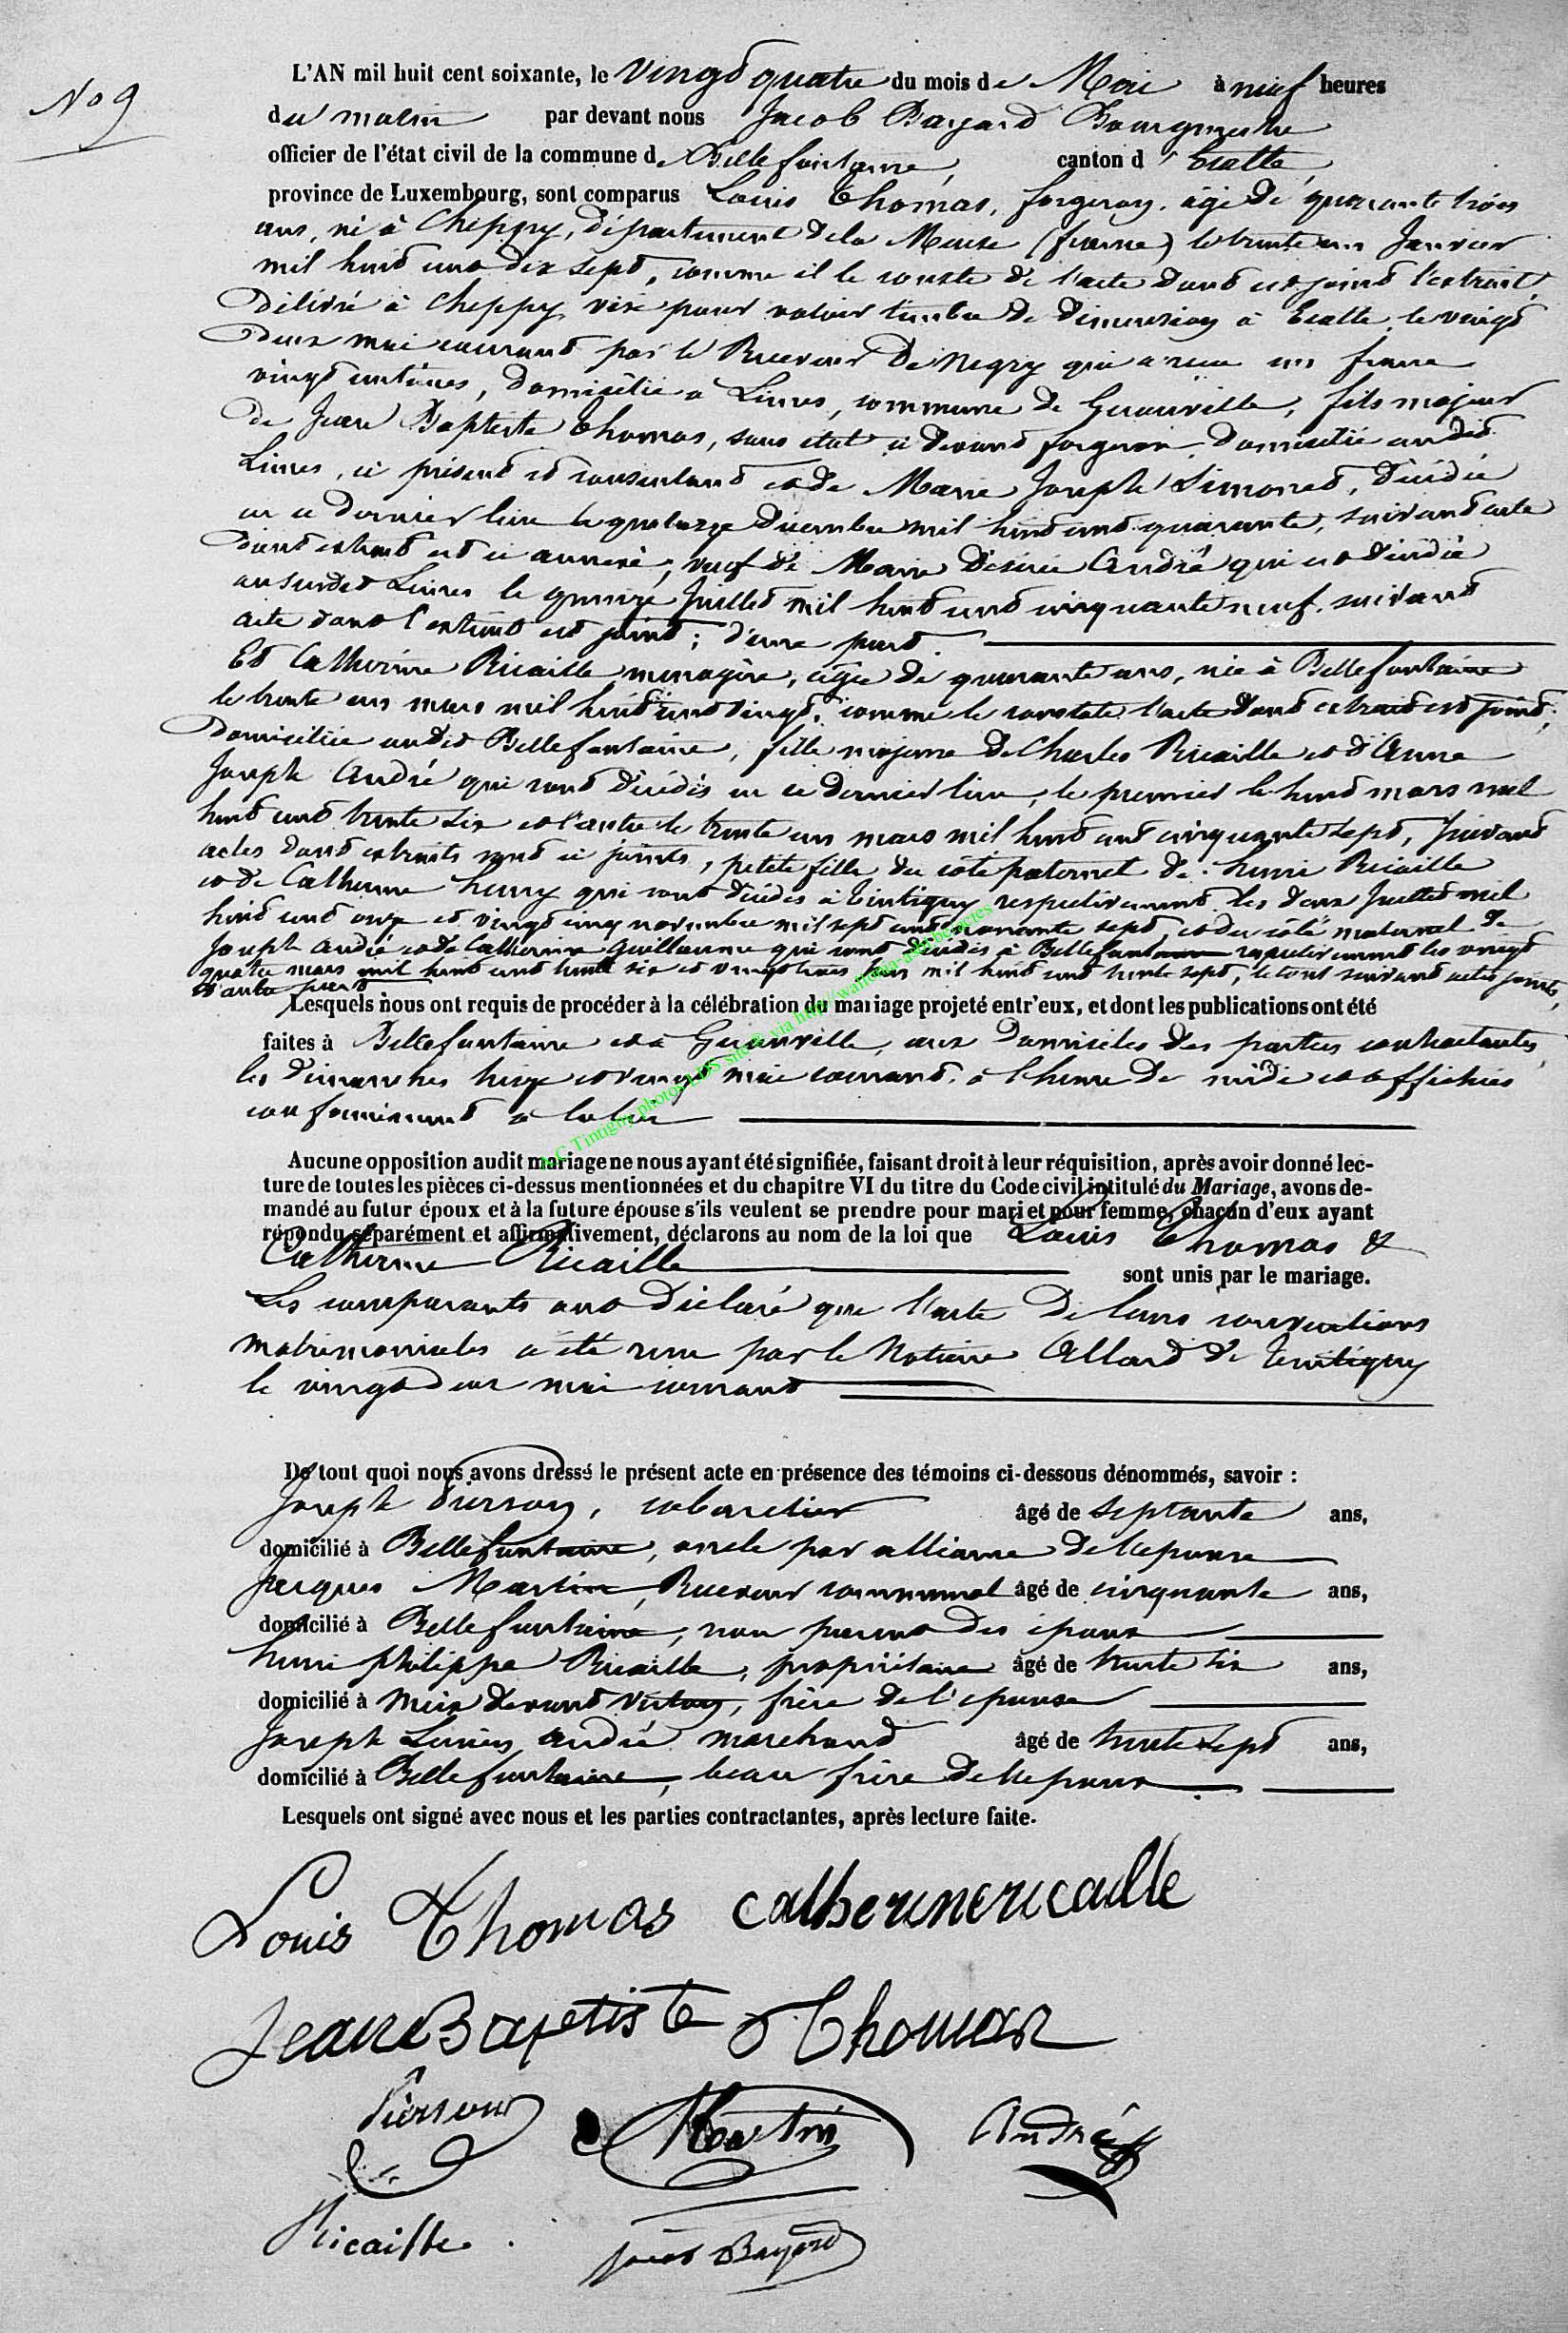 No 9
L'AN mil huit cent soixante, le vingt quatre du mois de Mai à neuf heures
du matin par devant nous Jacob Bayard Bourgmestre
officier de l'état civil de la commune de Bellefontaine, canton d'Etalle,
province de Luxembourg, sont comparus Louis Thomas, forgeron, âgé de quarante trois
ans, né à Cheppy, département de la Meuse (france) le trente un Janvier
mil huit cent dix sept, comme il le conste de l'acte dont est joint l'extrait
délivré à Cheppy visé pour valoir timbre de dimension à Etalle, le vingt
deux mai courant par le Receveur qui a reçu un franc
vingt centimes, domicilié à Limes, commune de Gerouville, fils majeur
de Jean Baptiste Thomas, sans état ci devant forgeron, domicilié audit
Limes, ci présent et consentant et de Marie Joseph Simonet, décédée
en ce dernier lieu le quatorze Décembre mil huit cent quarante, suivant acte
dont extrait est ci annexé, veuf de Marie Désirée André qui est décédée
au susdit Limes le quinze Juillet mil huit cent cinquante neuf, suivant
acte dont l'extrait est joint ; d'une part.
Et Catherine Ricaille ménagère, âgée de quarante ans, née à Bellefontaine
le trente un mars mil huit cent vingt, comme le constate l'acte dont extrait est joint,
domiciliée audit Bellefontaine, fille majeure de Charles Ricaille et d'Anne
Joseph André qui sont décédés en ce dernier lieu, le premier le huit mars mil
huit cent trente six et l'autre le trente un mars mil huit cent cinquante sept, suivant
actes dont extraits sont ci joints, petite fille du côté paternel de Henri Ricaille
et de Catherine henry qui sont décédés à Tintigny respectivement les deux Juillet mil
huit cent onze et vingt cinq novembre mil sept cent nonante sept, et du côté maternel de
Joseph André et de Catherine Guillaume qui sont décédés à Bellefontaine respectivement les vingt
quatre mars mil huit cent trente six et vingt trois mil huit cent trente sept, le tout suivant actes joints,
d'autre part
Lesquels nous ont requis de procéder à la célébration du mariage projeté entr'eux, et dont les publications ont été
faites à Bellefontaine et à Gerouville, aux domiciles des parties contractantes
les dimanches treize et vingt mai courant, à l'heure de midi et affichées
conformément à la loi
Aucune opposition audit mariage ne nous ayant été signifiée, faisant droit à leur réquisition, après avoir donné lec-
ture de toutes les pièces ci-dessus mentionnées et du chapitre VI du titre du Code civil intitulé du Mariage, avons de-
mandé au futur époux et à la future épouse s'ils veulent se prendre pour mari et pour femme, chacun d'eux ayant
répondu séparément et affirmativement, déclarons au nom de la loi que Louis Thomas &
Catherine Ricaille sont unis par le mariage.
Les comparants ont déclaré que l'acte de leurs conventions
matrimoniales a été reçu par le Notaire Allard de Tintigny
le vingt deux mai courant
De tout quoi nous avons dressé le présent acte en présence des témoins ci-dessous dénommés, savoir :
Joseph Pierson, cabaretier âgé de septante ans,
domicilié à Bellefontaine, oncle par alliance de l'épouse
Jacques Martin, Receveur communal âgé de cinquante ans,
domicilié à Bellefontaine, non parent des époux
henri philippe Ricaille, propriétaire âgé de trente six ans,
domicilié à Meix devant Virton, frère de l'épouse
Joseph Lucien André marchand âgé de trente sept ans,
domicilié à Bellefontaine, beau frère de l'épouse
Lesquels ont signé avec nous et les parties contractantes, après lecture faite.
Louis Thomas catherinericaille
Jean Baptiste Thomas
Pierson Martin André
Ricaille. Jacob Bayard